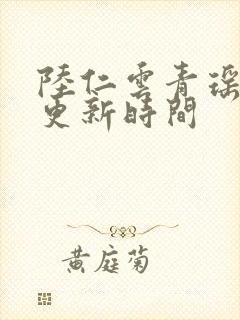 陸仁雲青瑶
更新時間
黄庭菊